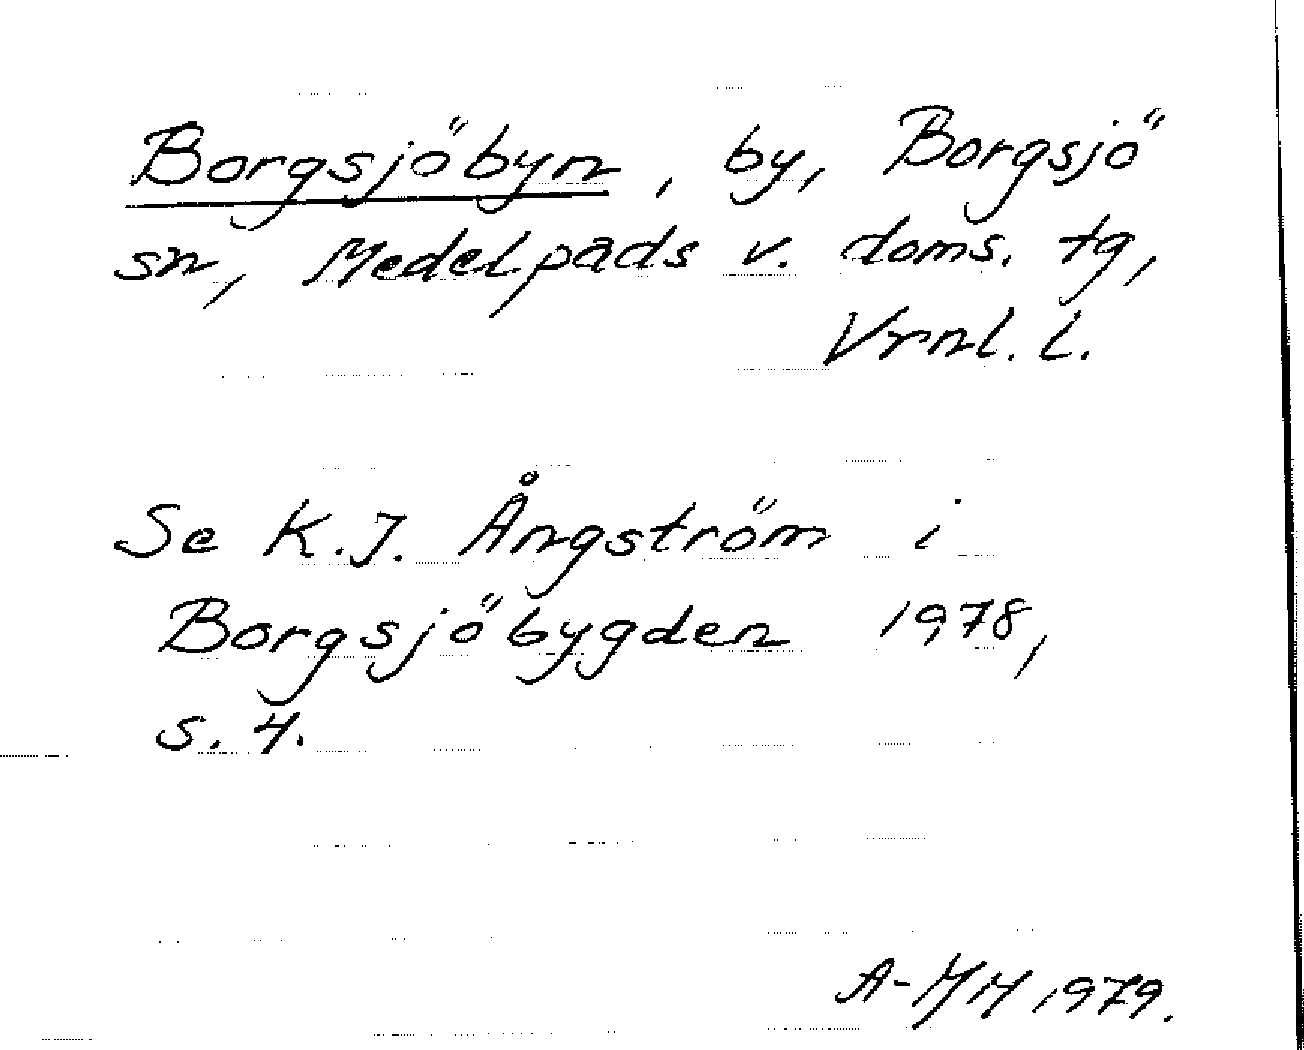 Borgsjöbyn, by, Borgsjö
sn, Medelpads v. doms. tg,
Vrnl. l.
Se K.J. Ångström i
Borgsjöbygden 1978,
s. 4.
1979.